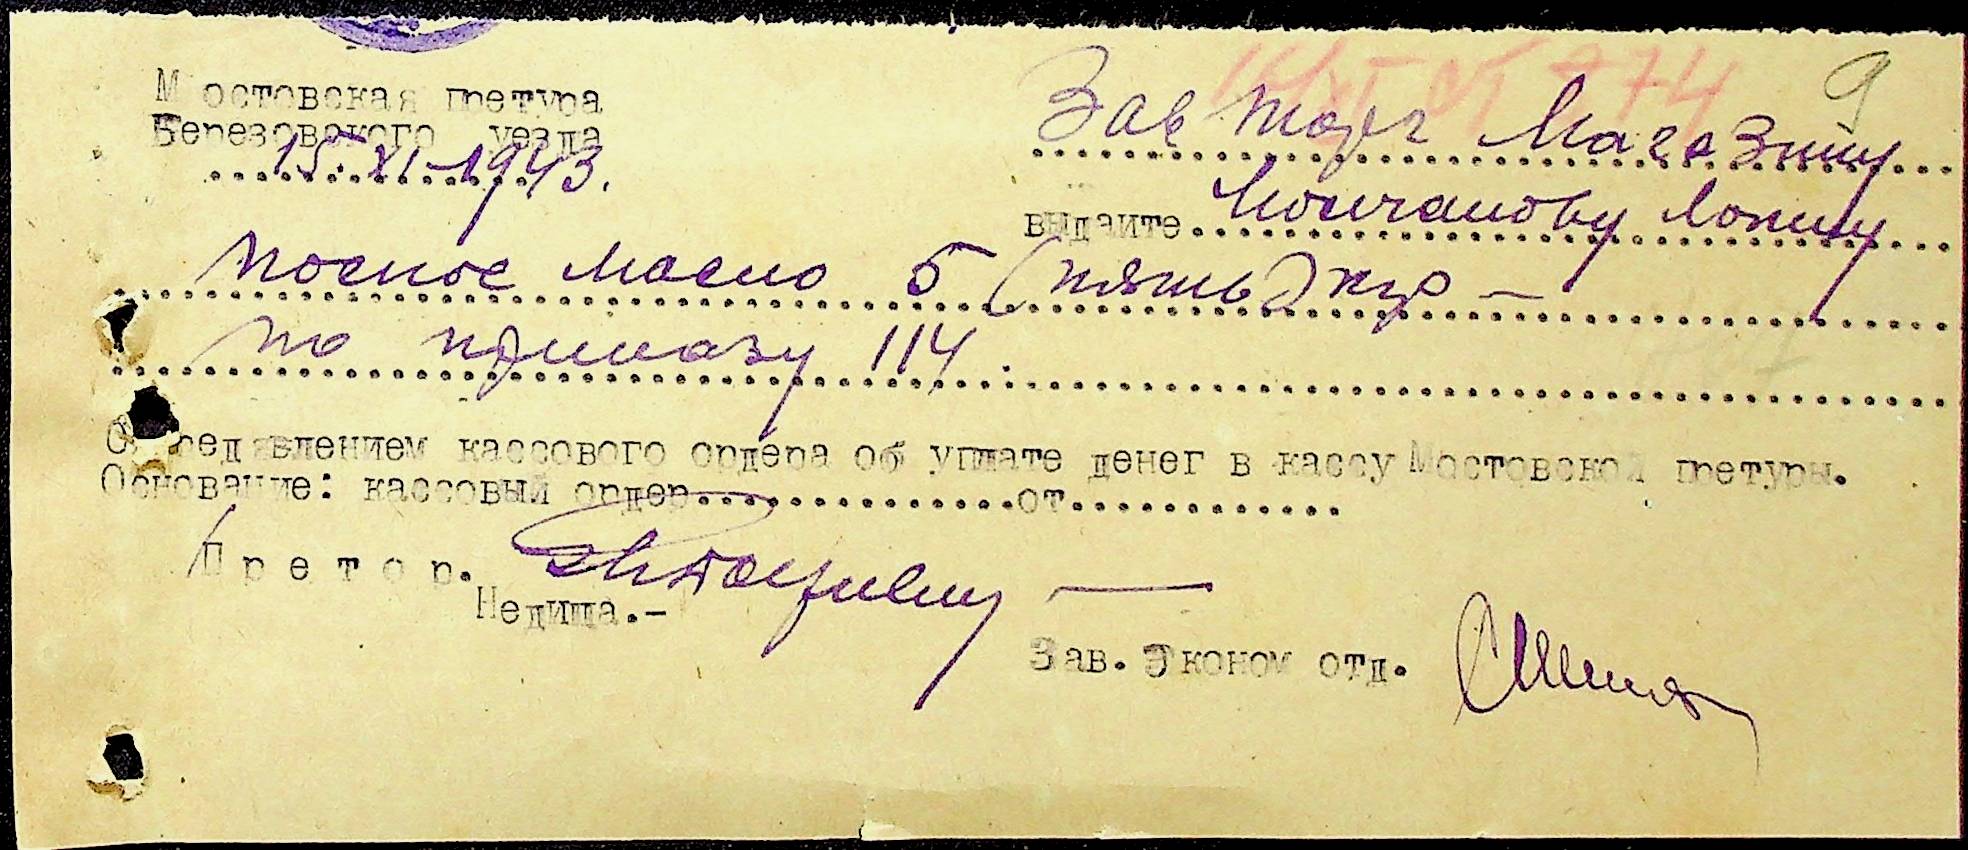 9
Мостовская претура
Березовского уезда
15.XI-1943.
Зав Торг Магазину
выдаите Молчанову
постное масло 5 (пять) кгр —
по приказу 114.
С предявлением кассового ордера об уплате денег в кассу Мостовской претуры.
Основание: кассовый ордер...............от.............
Претор.
Недица.-
Зав. Эконом отд.